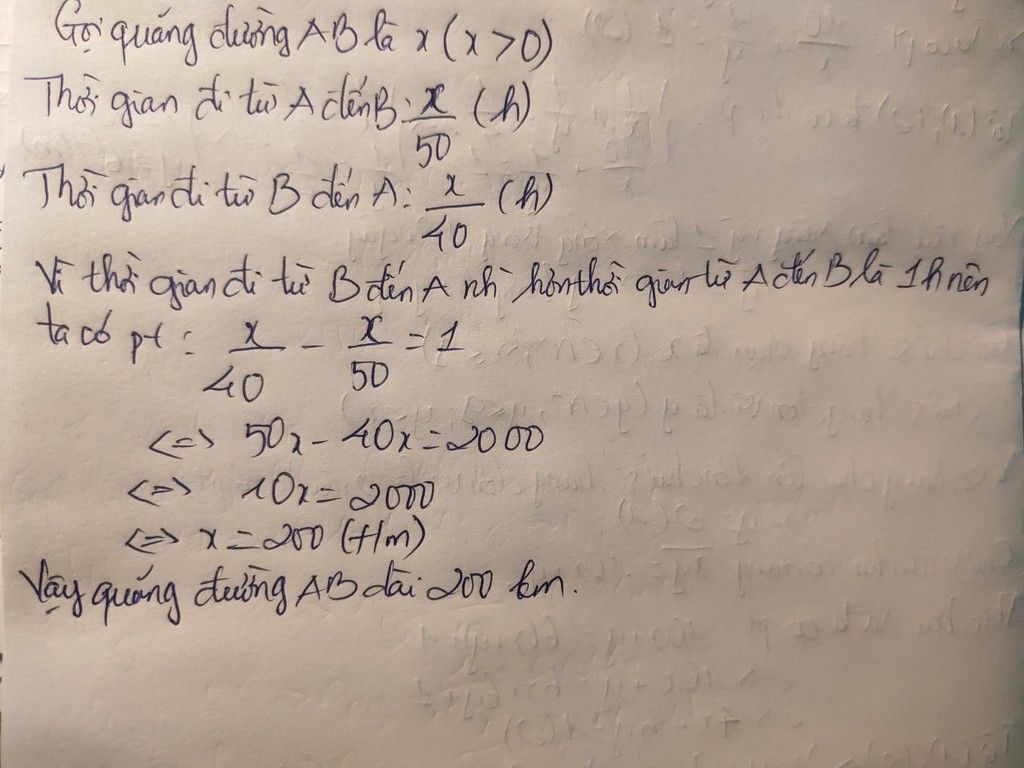 Gọi quãng đường AB là x (x > 0)
Thời gian đi từ A đến B: x/50 (h)
Thời gian đi từ B đến A: x/40 (h)
Vì thời gian đi từ B đến A nh hơn thời gian từ A đến B là 1h nên
ta có pt: x/40 - x/50 = 1
<=> 50x - 40x = 2000
<=> 10x = 2000
<=> x = 200 (t/m)
Vậy quãng đường AB dài 200 km.